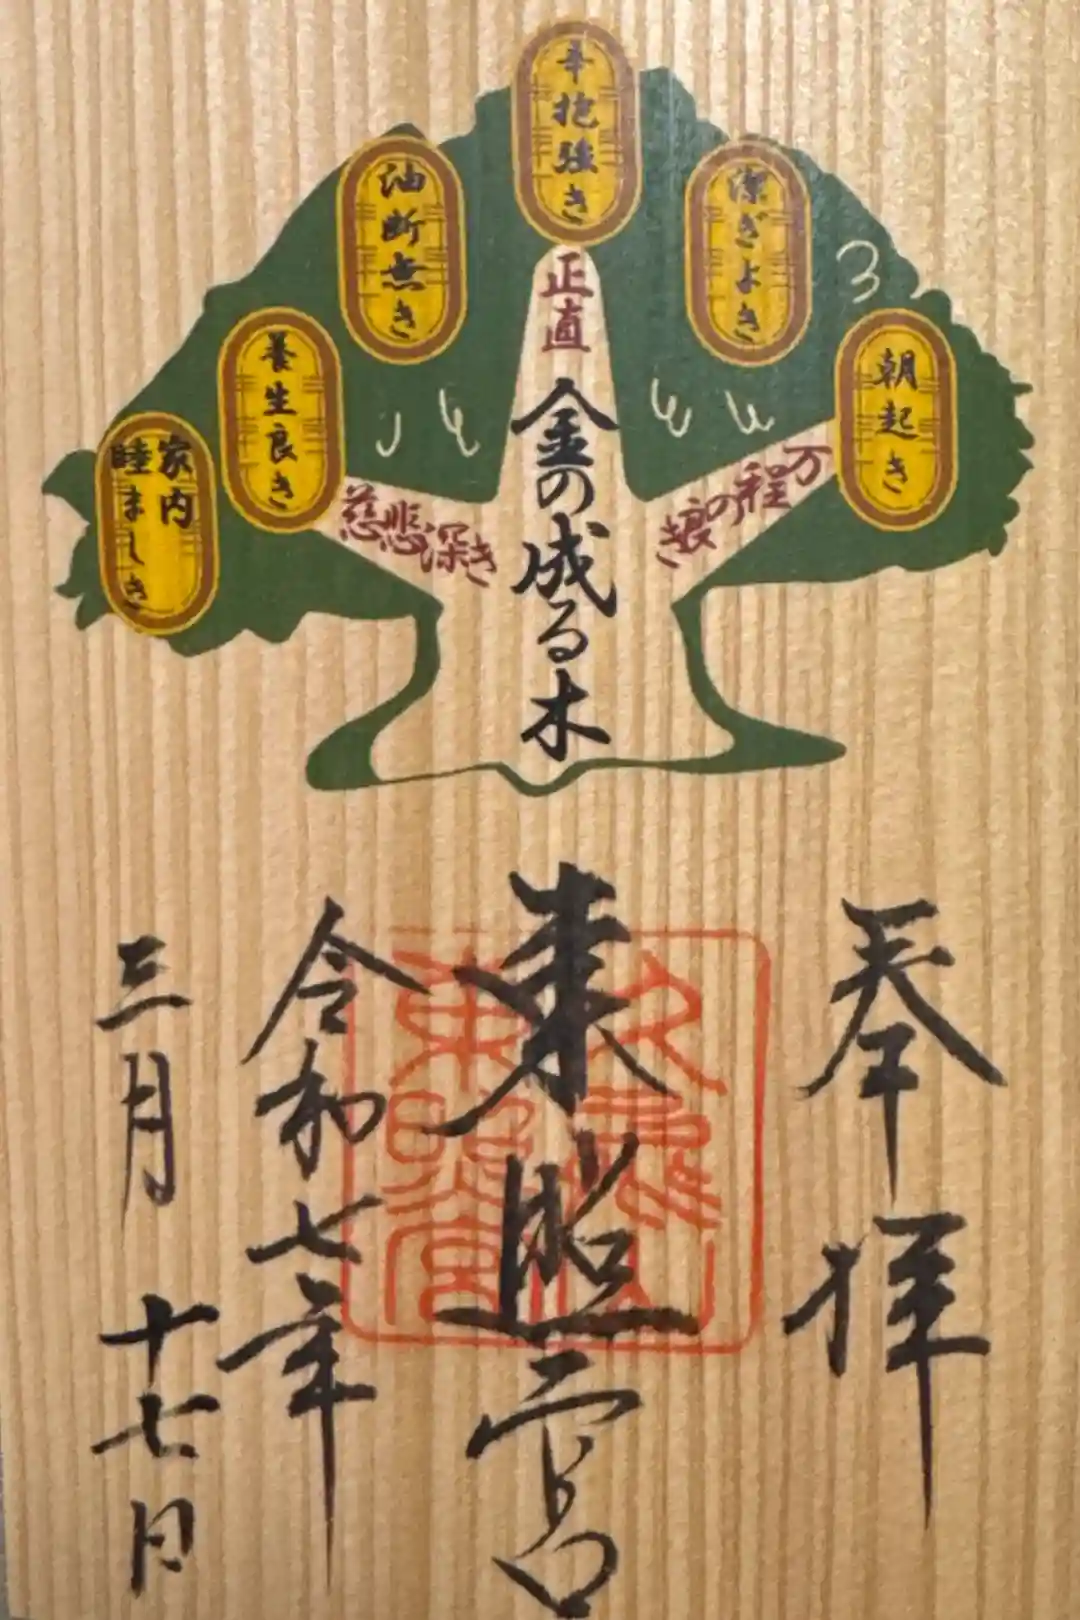 朝起き
潔ぎよき
辛抱強き
油断無き
養生良き
家内
睦ましき
万程の良き
正直
慈悲深き
金の成る木
奉拝
東照宮
令和七年
三月十七日